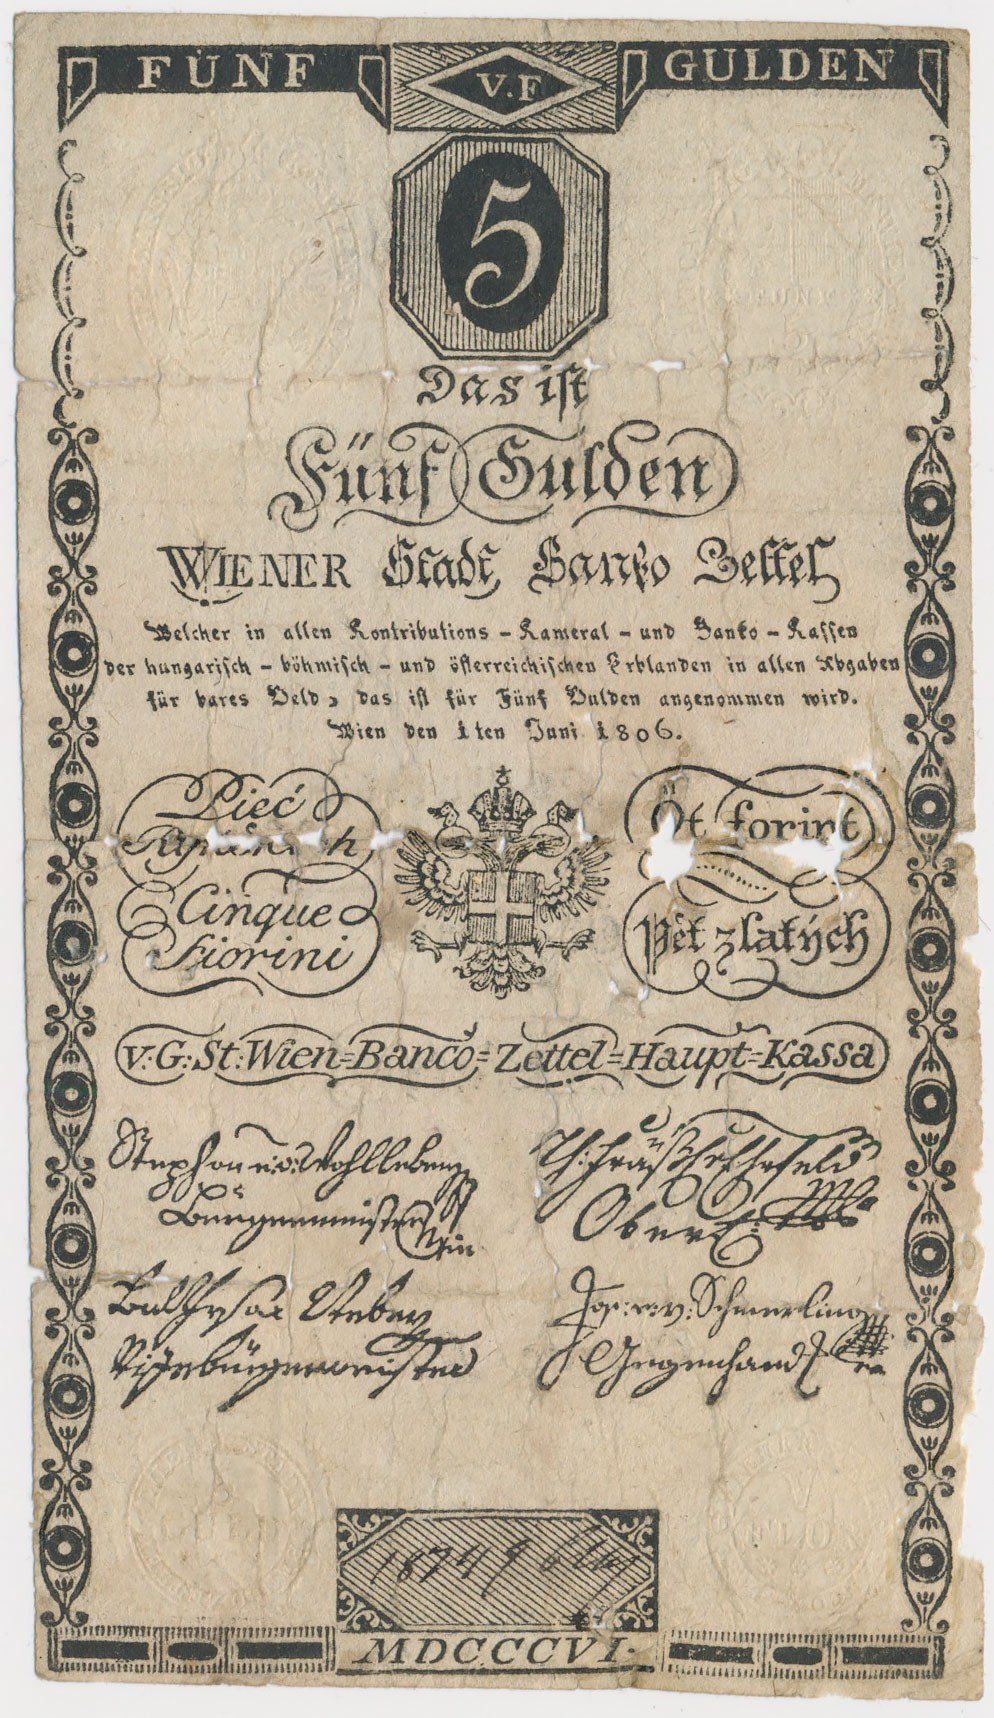 FÜNF V.F GULDEN
5
Das ist
Fünf Gulden
WIENER Stadt Banko Zettel
Welcher in allen Kontributions - Kameral - und Banko - Kassen
der hungarisch - böhmisch - und österreichischen Erblanden in allen Abgaben
für bares Geld, das ist für Fünf Gulden angenommen wird.
Wien den 1ten Juni 1806.
Pieć
Cinque
Fiorini
Öt forint
Pět zlatých
V:G:St:Wien=Banco=Zettel=Haupt=Kassa
Stephan v:Wohlleben
Burgermeister
Ober
Jos: v: Schmerling
Vizebürgermeister
Gegenhand
18749
MDCCCVI.